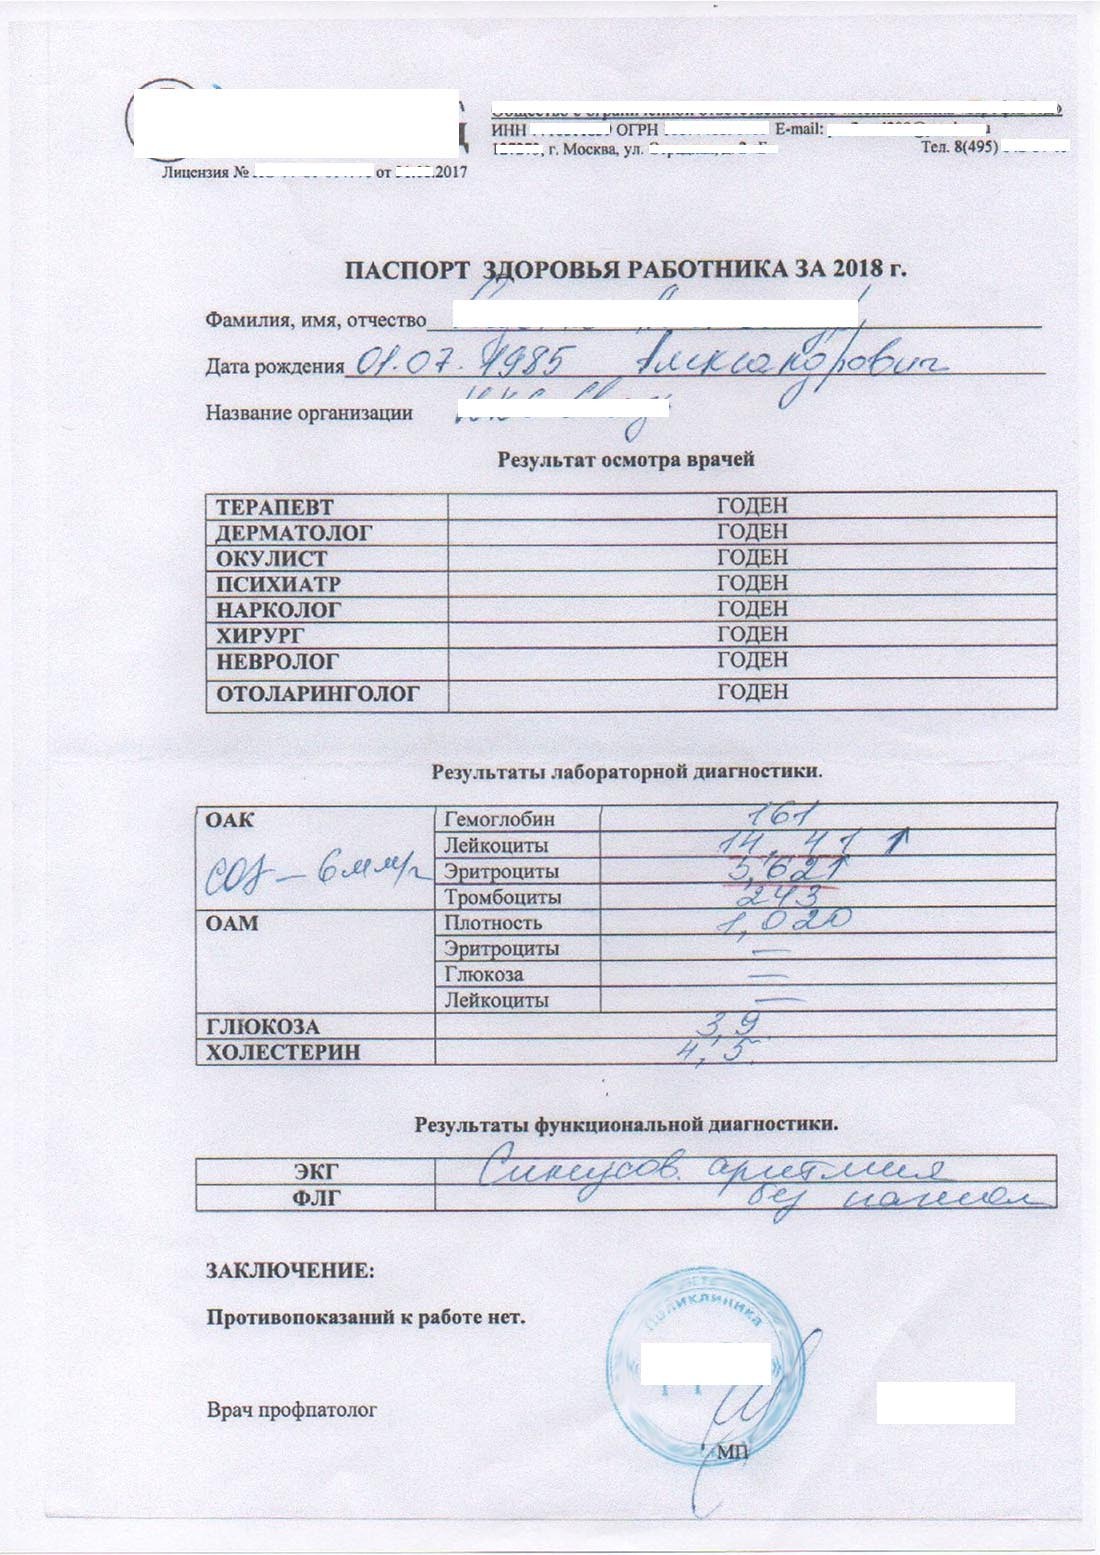 ИНН ОГРН E-mail:
г. Москва, ул. Тел. 8(495)
Лицензия № от 2017
ПАСПОРТ ЗДОРОВЬЯ РАБОТНИКА ЗА 2018 г.
Фамилия, имя, отчество
Дата рождения 01.07.1985 Александрович
Название организации
Результат осмотра врачей
ТЕРАПЕВТ ГОДЕН
ДЕРМАТОЛОГ ГОДЕН
ОКУЛИСТ ГОДЕН
ПСИХИАТР ГОДЕН
НАРКОЛОГ ГОДЕН
ХИРУРГ ГОДЕН
НЕВРОЛОГ ГОДЕН
ОТОЛАРИНГОЛОГ ГОДЕН
Результаты лабораторной диагностики.
ОАК Гемоглобин 161
Лейкоциты 14,41 ↑
СОЭ – 6 мм/г Эритроциты 5,621
Тромбоциты 243
ОАМ Плотность 1,020
Эритроциты —
Глюкоза —
Лейкоциты —
ГЛЮКОЗА 3,9
ХОЛЕСТЕРИН 4,5
Результаты функциональной диагностики.
ЭКГ Синусов. аритмия
ФЛГ без патол
ЗАКЛЮЧЕНИЕ:
Поликлиника
Противопоказаний к работе нет.
Врач профпатолог
МП